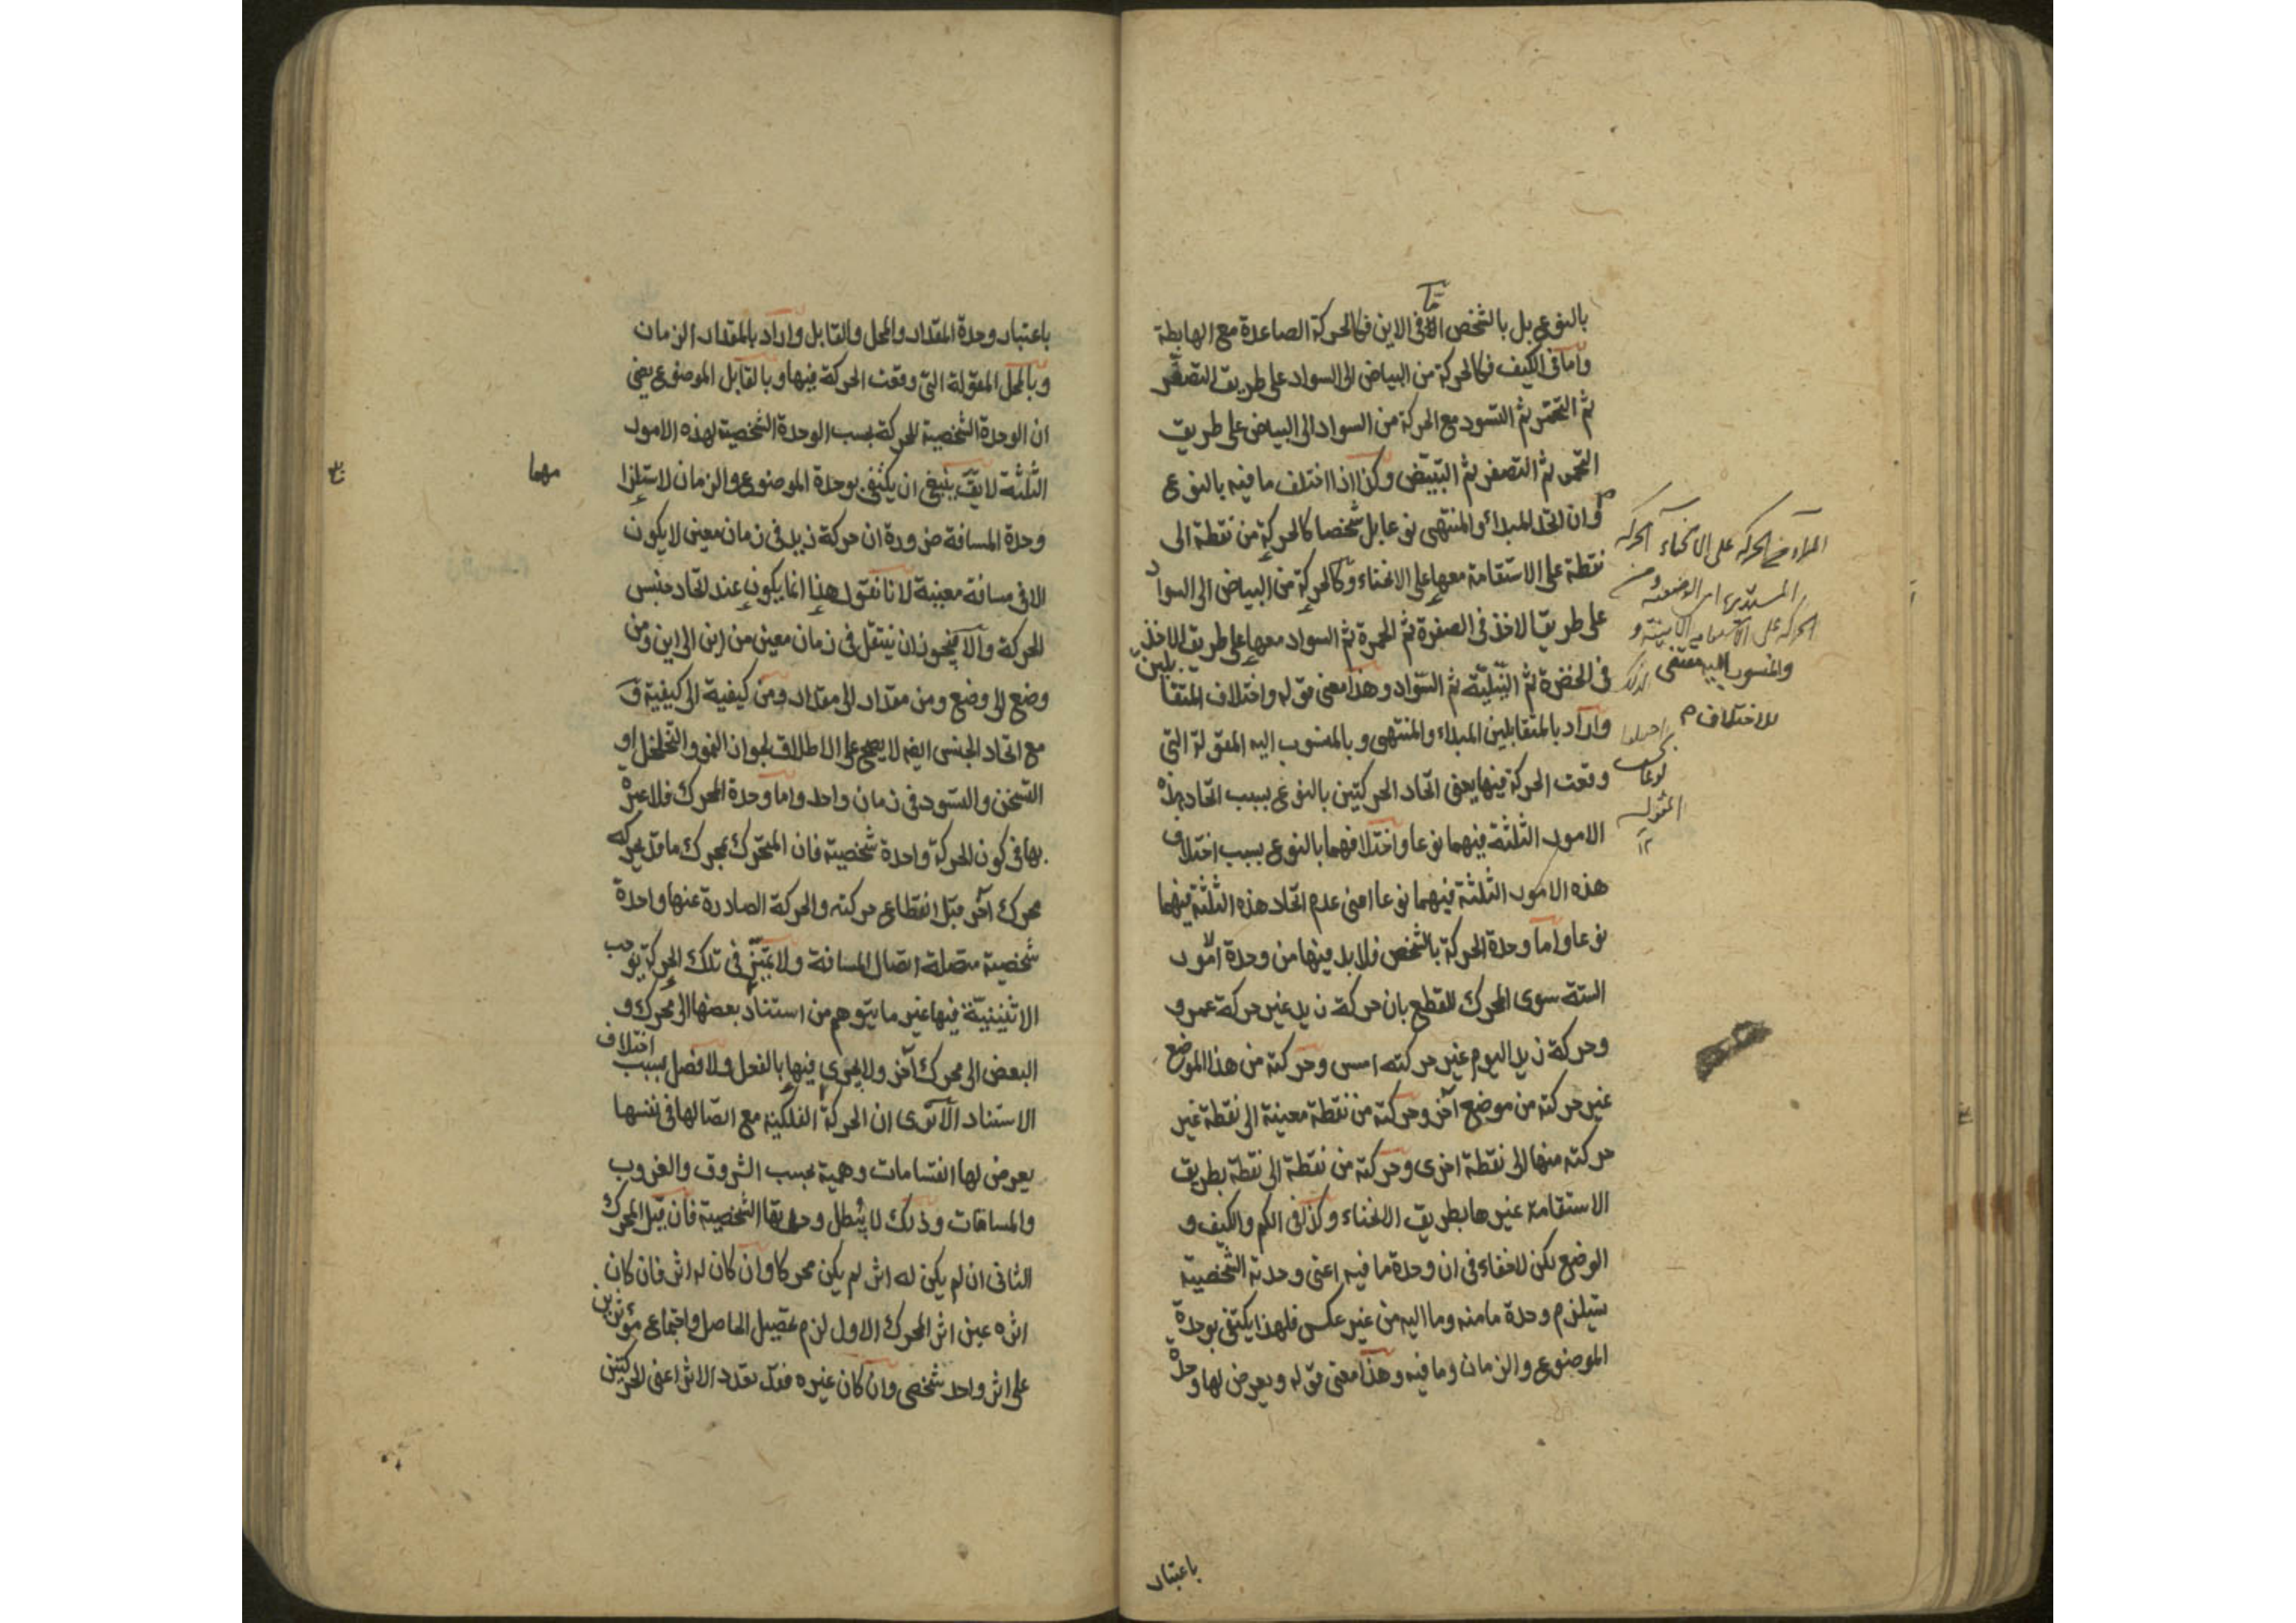 بالنوع بل بالشخص اما فى الاين فكالحركة الصاعدة مع الهابطة
واما فى الكيف فكالحركة من البياض الى السواد على طريق التصفر
ثم التحمر ثم التسود مع الحركة من السواد الى البياض على طريق
التحمر ثم التصفر ثم التبيض وكذا اذا اختلف ما فيه بالنوع
وان اتحد المبداء والمنتهى نوعا بل شخصا كالحركة من نقطة الى
نقطة على الاستقامة معها على الانحناء وكالحركة من البياض الى السواد
على طريق الاخذ فى الصفرة ثم الحمرة ثم السواد معها على طريق الاخذ
فى الخضرة ثم النيلية ثم السواد وهذا معنى قوله واختلاف المتقابلين
واراد بالمتقابلين المبداء والمنتهى وبالمنسوب اليه المقولة التى
وقعت الحركة فيها يعنى اتحاد الحركتين بالنوع بسبب اتحاد هذه
الامور الثلثة فيهما نوعا واختلافهما بالنوع بسبب اختلاف
هذه الامور الثلثة فيهما نوعا اعنى عدم اتحاد هذه الثلثة فيهما
نوعا واما وحدة الحركة بالشخص فلابد فيها من وحدة الامور
الستة سوى المحرك للقطع بان حركة زيد غير حركة عمرو
وحركة زيد اليوم غير حركته امس وحركته من هذا الموضع
غير حركته من موضع آخر وحركته من نقطة معينة الى نقطة غير
حركته منها الى نقطة اخرى وحركته من نقطة الى نقطة بطريق
الاستقامة غيرها بطريق الانحناء وكذا فى الكم والكيف و
الوضع لكن لاخفاء فى ان وحدة ما فيه اعنى وحدته الشخصية
يستلزم وحدة مامنه وما اليه من غير عكس فلهذا يكتفى بوحدة
الموضوع والزمان وما فيه وهذا معنى قوله ويعرض لها وحدة
باعتبار
والمنسوب اليه مقتضى
للاختلاف م
باعتبار وحدة المقدار والمحل والقابل واراد بالمقدار الزمان
وبالمحل المقولة التى وقعت الحركة فيها وبالقابل الموضوع يعنى
ان الوحدة الشخصية للحركة بسبب الوحدة الشخصية لهذه الامور
الثلثة لا يق ينبغى ان يكتفى بوحدة الموضوع والزمان لاستلزا
مهما
وحدة المسافة ضرورة ان حركة زيد فى زمان معين لا يكون
الا فى مسافة معينة لانا نقول هذا انما يكون عند اتحاد جنس
الحركة والا فيجوز ان ينتقل فى زمان معين من اين الى اين ومن
وضع الى وضع ومن مقدار الى مقدار ومن كيفية الى كيفية
مع اتحاد الجنس ايضه لا يصح على الاطلاق لجواز النمو والتخلخل او
التسخن والتسود فى زمان واحد واما وحدة المحرك فلا عبرة
بها فى كون الحركة واحدة شخصية فان المتحرك بمحرك ما قد يحركه
محرك آخر قبل انقطاع حركته والحركة الصادرة عنها واحدة
شخصية متصلة اتصال المسافة ولا تميز فى تلك الحركة يوجب
الاثنينية فيها غير ما يتوهم من استناد بعضها الى محرك و
البعض الى محرك آخر ولا يجزى فيها بالفعل ولا فصل بسبب اختلاف
الاستناد الا ترى ان الحركة الفلكية مع اتصالها فى نفسها
يعرض لها انقسامات وهمية بحسب الشروق والغروب
والمسامتات وذلك لا يبطل وحدتها الشخصية فان قيل المحرك
الثانى ان لم يكن له اثر لم يكن محركا وان كان له اثر فان كان
اثره عين اثر المحرك الاول لزم تحصيل الحاصل واجتماع مؤثرين
على اثر واحد شخصى وان كان غيره فقد تعدد الاثر اعنى الحركتين